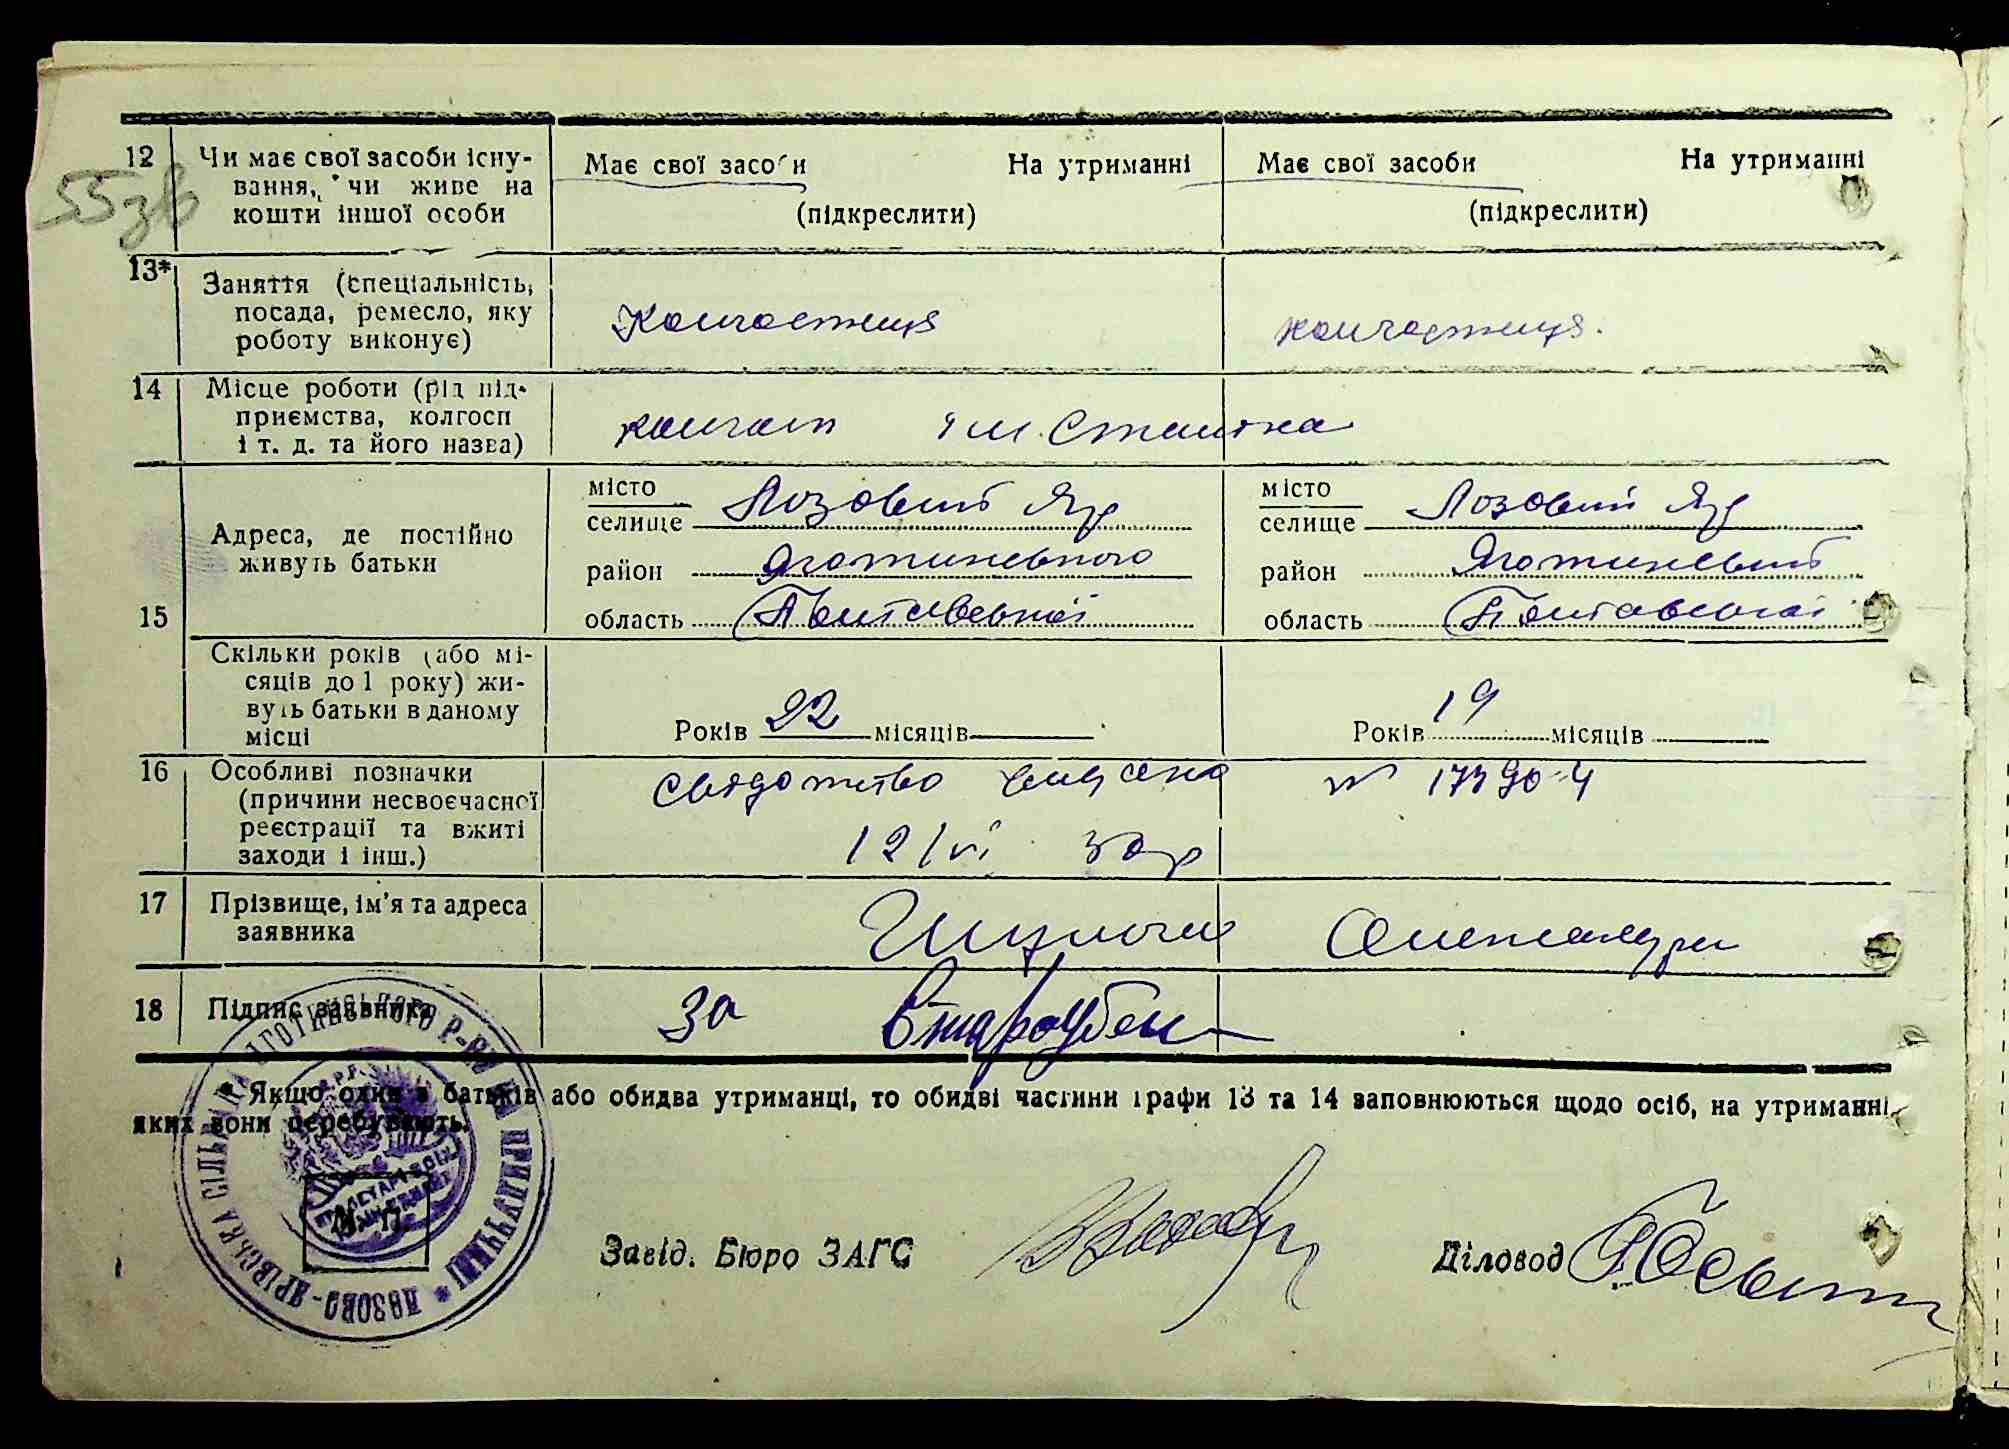 55 зв
12 Чи має свої засоби існу-
вання, чи живе на
кошти іншої особи
Має свої засоби На утриманні
(підкреслити)
Має свої засоби На утриманні
(підкреслити)
13* Заняття (спеціальність,
посада, ремесло, яку
роботу виконує)
Колгоспниця
колгоспниця.
14 Місце роботи (рід під-
приємства, колгосп
і т. д. та його назва)
колгосп ім. Сталіна
15 Адреса, де постійно
живуть батьки
місто
селище Лозовий Яр
район Яготинського
область Полтавської
місто
селище Лозовий Яр
район Яготинський
область Полтавської
Скільки років (або мі-
сяців до 1 року) жи-
вуть батьки в даному
місці
Років 22 місяців
Років 19 місяців
16 Особливі позначки
(причини несвоєчасної
реєстрації та вжиті
заходи і інш.)
свідотство видано №
12/VI
17 Прізвище, ім'я та адреса
заявника
18 Підпис заявника
За
* Якщо один з батьків або обидва утриманці, то обидві частини графи 13 та 14 заповнюються щодо осіб, на утриманні
яких вони перебувають.
ЛОЗОВО-ЯРІВСЬКА СІЛЬРАДА ЯГОТИНСЬКОГО Р-НУ НА ПРИЛУЧЧИНІ
М. П.
Завід. Бюро ЗАГС
Діловод